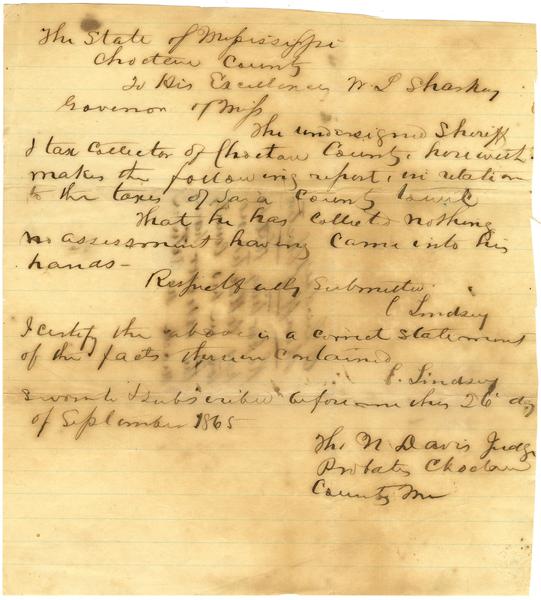 The State of Mississippi
Choctaw County
To His Excellency W L Sharkey
Governor of Miss
The undersigned Sheriff
& tax Collector of Choctaw County, herewith
makes the following report, in relation
to the taxes of Said County to wit
That he has Collected nothing
no assessment having Came into his
hands -
Respectfully Submitted
C Lindsey
I certify the above is a correct Statement
of the facts therein Contained
C. Lindsey
Sworn to & Subscribed before me this 26 day
of September 1865
Tho N Davis Judge
Probate Choctaw
County Mi